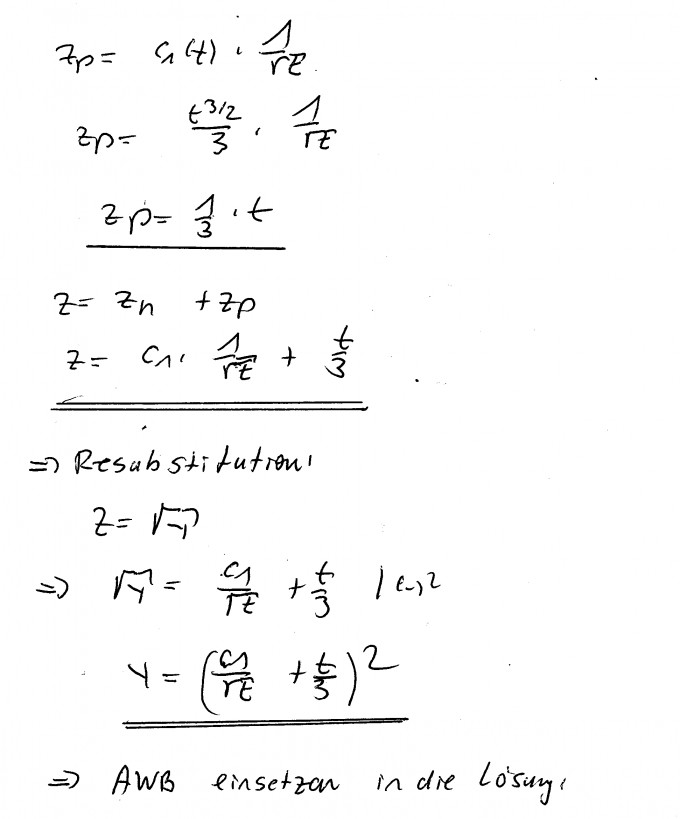 zp= c₁(t) · 1/√t
zp= t^3/2/3 · 1/√t
zp= 1/3 · t
z= zh + zp
z= c₁ · 1/√t + t/3
=> Resubstitution:
z= √y
=> √y = c₁/√t + t/3 | (..)²
y = (c₁/√t + t/3)²
=> AWB einsetzen in die Lösung: